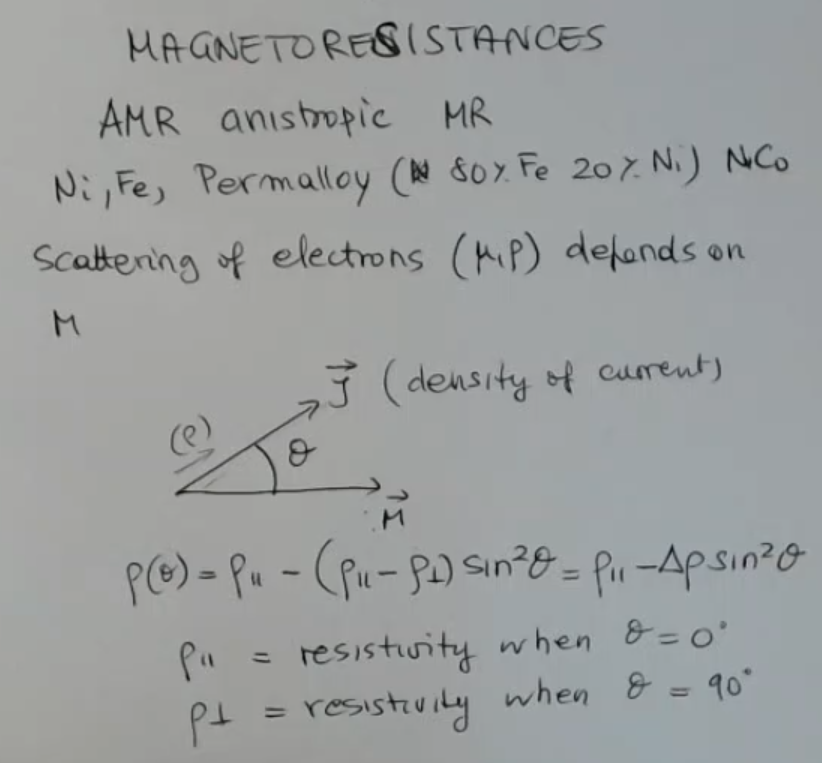 MAGNETORESISTANCES
AMR anistropic MR
Ni, Fe, Permalloy (80% Fe 20% Ni) NiCo
Scattering of electrons (μ,ρ) depends on
M
J⃗ (density of current)
(e)
θ
M⃗
ρ(θ) = ρ∥ - (ρ∥ - ρ⊥) sin²θ = ρ∥ - Δρ sin²θ
ρ∥ = resistivity when θ = 0°
ρ⊥ = resistivity when θ = 90°